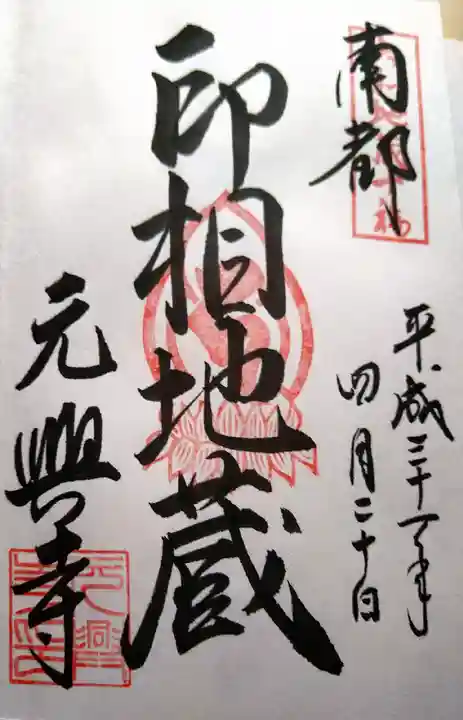 南都
平成三十一年
四月二十日
印相地蔵
元興寺